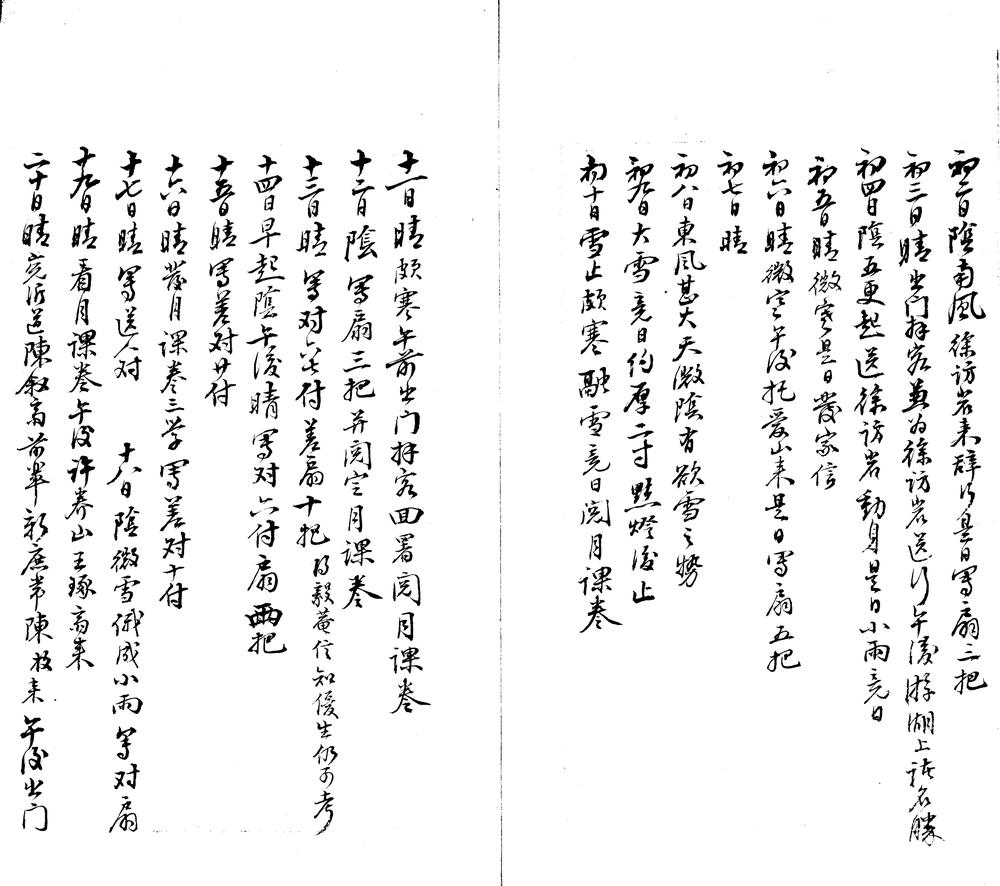 初二日陰南風徐访岩来辞行是日寫扇三把
初三日晴出门拜客兼为徐访岩送行午後游湖上诸名勝
初四日陰五更起送徐访岩動身是日小雨竟日
初五日晴微寒是日發家信
初六日晴微寒午後托爱山来是日寫扇五把
初七日晴
初八日東風甚大天微陰有欲雪之势
初九日大雪竟日约厚二寸點燈後止
初十日雪止颇寒融雪竟日阅月課卷
十一日晴颇寒午前出门拜客回署阅月課卷
十二日陰寫扇三把并阅定月課卷
十三日晴寫对付差扇十把得毅菴信知優生仍可考
十四日早起陰午後晴寫对六付扇兩把
十五日晴寫差对廿付
十六日晴發月課卷三学寫差对十付
十七日晴寫送人对 十八日陰微雪俄成小雨寫对扇
十九日晴看月課卷午後许养山王琢斋来
二十日晴兖沂道陳叙斋前辈新庶常陳枚来午後出门